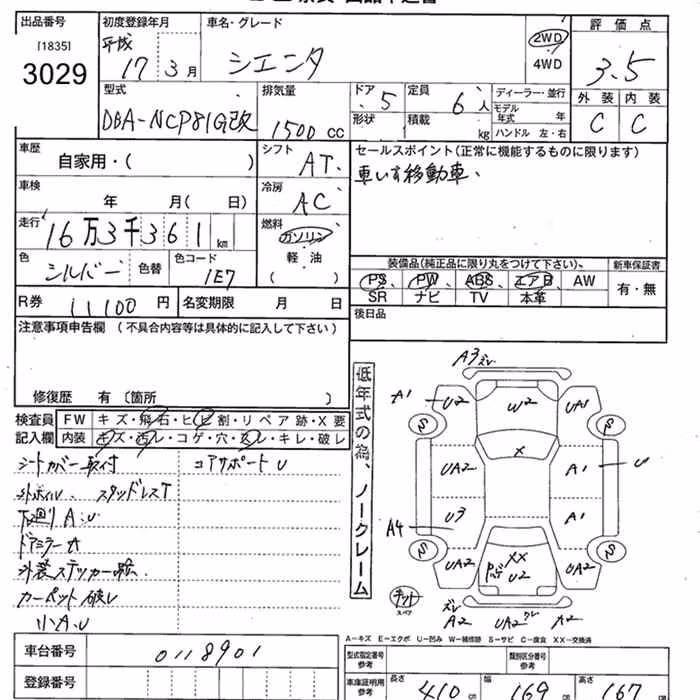 出品番号 初度登録年月 車名・グレード 評価点
[1835] 平成 2WD
3029 17 3月 シエンタ 4WD 3.5
型式 排気量 ドア 5 定員 6人 ディーラー・並行 外装 内装
DBA-NCP81G改 1500cc 形状 積載 kg モデル年式 年 C C
ハンドル 左・右
車歴 シフト AT セールスポイント(正常に機能するものに限ります)
自家用・( ) 車いす移動車、
車検 冷房 AC
年 月( 日)
走行 燃料
16万3千361km ガソリン
色 シルバー 色替 色コード 1E7 軽油 ( )
装備品(純正品に限り丸をつけて下さい)、 新車保証書
PS、 PW、 ABS、 エアB、 AW 有・無
SR ナビ TV 本革
R券 11100円 名変期限 月 日
後日品
注意事項申告欄(不具合内容等は具体的に記入して下さい)
修復歴 有〔箇所 〕
検査員記入欄
FW キズ・飛石・ヒビ割・リペア跡・X要
内装 キズ・汚レ・コゲ・穴・スレ・キレ・破レ
シートカバー取付 コアサポートU
スタッドレスT
下廻りA.U
ドアミラーA
外装ステッカー
カーペット破レ
小A.U
低年式の為、ノークレーム
A3 ズレ
A1 U2 W2 UA1
S S
UA2 X A1 U
A4 U3 A1
S S
UA2 XX U2 UA2
スペア
ズレ A2 UA2 A2
A-キズ E-エクボ U-凹み W-補修跡 S-サビ C-腐食 XX-交換済
車台番号 0118901
登録番号
型式指定番号参考 類別区分番号参考
車庫証明用参考 長さ 410cm 幅 169cm 高さ 167cm